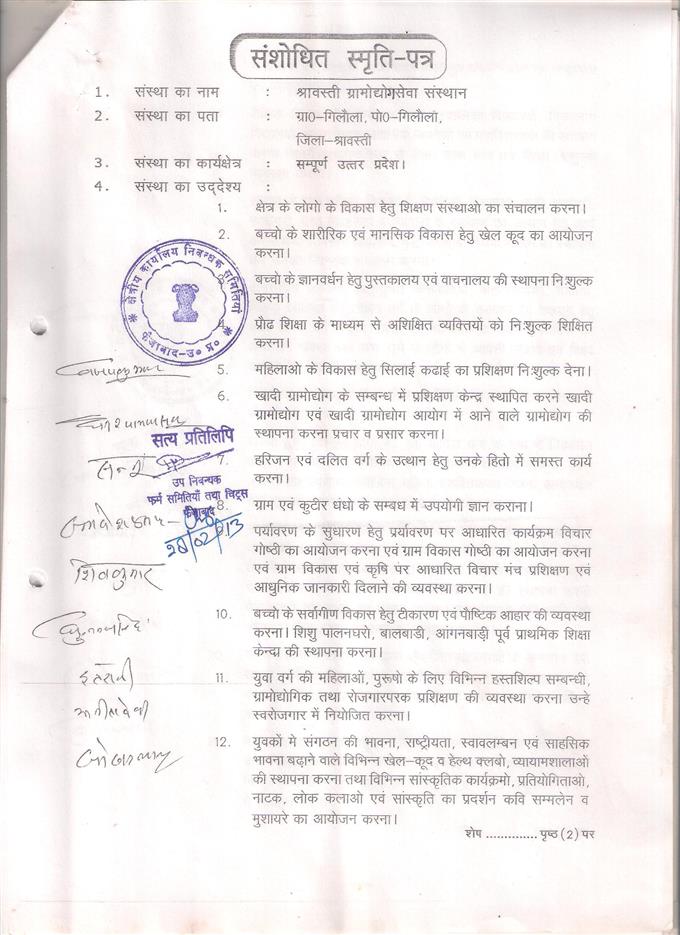 संशोधित स्मृति-पत्र
1. संस्था का नाम : श्रावस्ती ग्रामोद्योगसेवा संस्थान
2. संस्था का पता : ग्रा0-गिलौला, पो0-गिलौलो,
जिला-श्रावस्ती
3. संस्था का कार्यक्षेत्र : सम्पूर्ण उत्तर प्रदेश।
4. संस्था का उद्देश्य :
1. क्षेत्र के लोगो के विकास हेतु शिक्षण संस्थाओ का संचालन करना।
2. बच्चो के शारीरिक एवं मानसिक विकास हेतु खेल कूद का आयोजन
करना।
3. बच्चो के ज्ञानवर्धन हेतु पुस्तकालय एवं वाचनालय की स्थापना निःशुल्क
करना।
4. प्रौढ शिक्षा के माध्यम से अशिक्षित व्यक्तियों को निःशुल्क शिक्षित
करना।
5. महिलाओ के विकास हेतु सिलाई कढाई का प्रशिक्षण निःशुल्क देना।
6. खादी ग्रामोद्योग के सम्बन्ध में प्रशिक्षण केन्द्र स्थापित करने खादी
ग्रामोद्योग एवं खादी ग्रामोद्योग आयोग में आने वाले ग्रामोद्योग की
स्थापना करना प्रचार व प्रसार करना।
7. हरिजन एवं दलित वर्ग के उत्थान हेतु उनके हितो में समस्त कार्य
करना।
8. ग्राम एवं कुटीर धंधो के सम्बध में उपयोगी ज्ञान कराना।
पर्यावरण के सुधारण हेतु प्रर्यावरण पर आधारित कार्यक्रम विचार
गोष्ठी का आयोजन करना एवं ग्राम विकास गोष्ठी का आयोजन करना
एवं ग्राम विकास एवं कृषि पर आधारित विचार मंच प्रशिक्षण एवं
आधुनिक जानकारी दिलाने की व्यवस्था करना।
10. बच्चो के सर्वागीण विकास हेतु टीकारण एवं पौष्टिक आहार की व्यवस्था
करना। शिशु पालनघरो, बालबाडी, आंगनबाड़ी पूर्व प्राथमिक शिक्षा
केन्दा की स्थापना करना।
11. युवा वर्ग की महिलाओं, पुरूषो के लिए विभिन्न हस्तशिल्प सम्बन्धी,
ग्रामोद्योगिक तथा रोजगारपरक प्रशिक्षण की व्यवस्था करना उन्हे
स्वरोजगार में नियोजित करना।
12. युवकों मे संगठन की भावना, राष्ट्रीयता, स्वावलम्बन एवं साहसिक
भावना बढ़ाने वाले विभिन्न खेल-कूद व हेल्थ क्लबो, व्यायामशालाओं
की स्थापना करना तथा विभिन्न सांस्कृतिक कार्यक्रमो, प्रतियोगिताओ,
नाटक, लोक कलाओ एवं सांस्कृति का प्रदर्शन कवि सम्मलेन व
मुशायरे का आयोजन करना।
शेष .............. पृष्ठ (2) पर
क्षेत्रीय कार्यालय निबन्धक समितियां
फैजाबाद-उ० प्र०
सत्य प्रतिलिपि
उप निबन्धक
फर्म समितियाँ तथा चिट्स
फैजाबाद
शिवकुमार